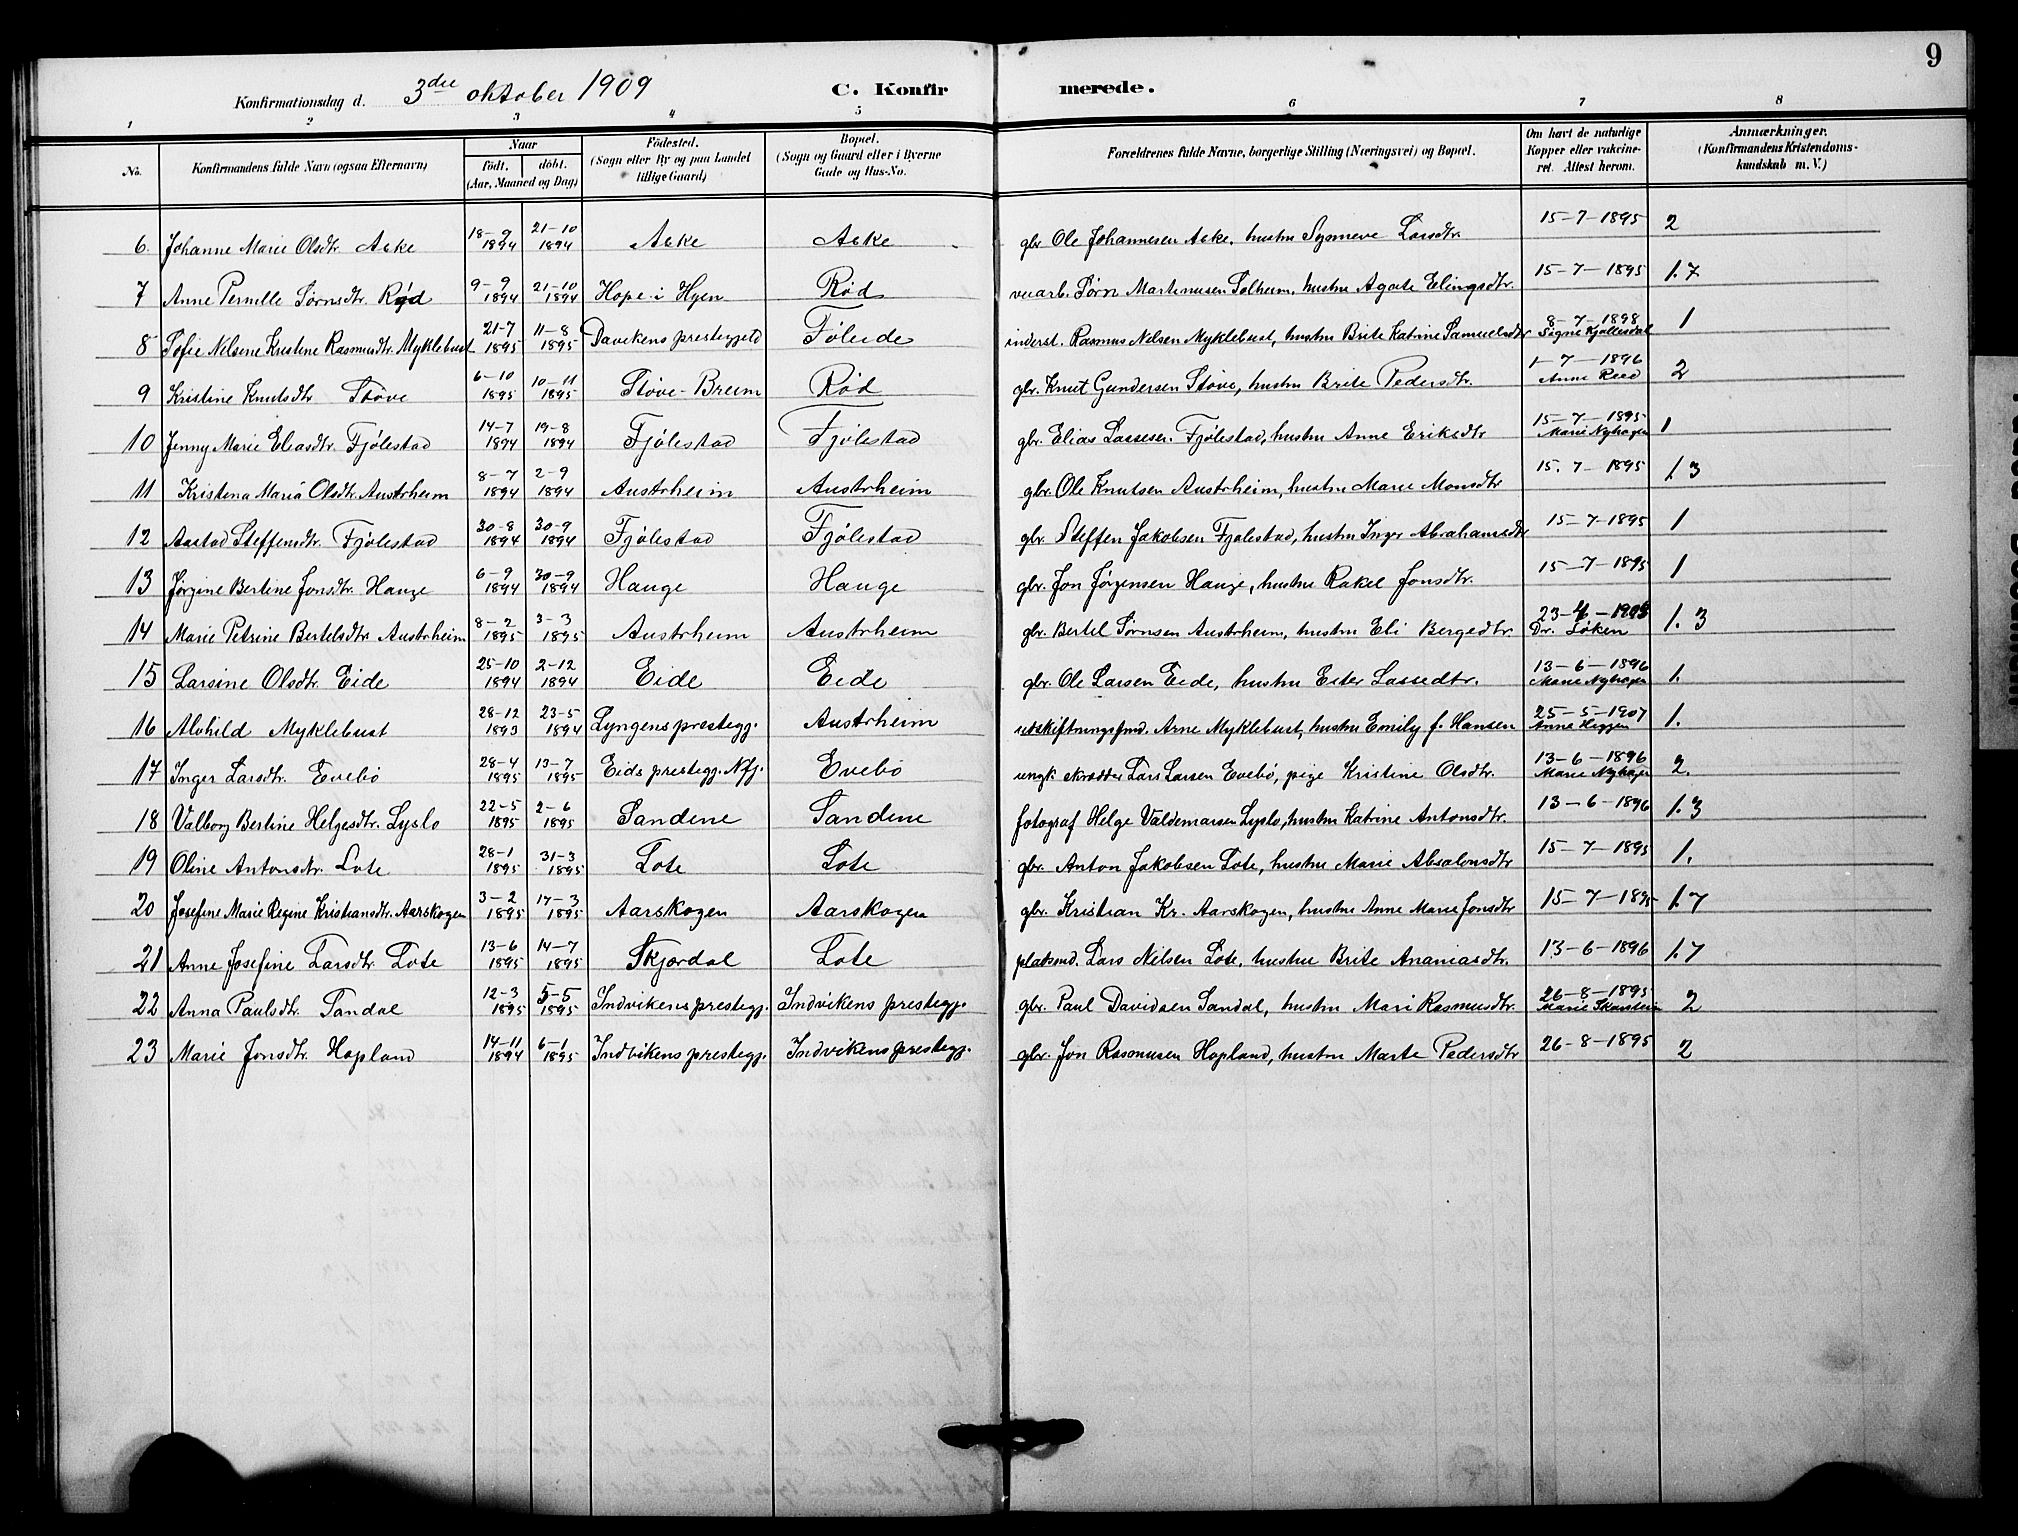 9
Konfirmationsdag d. 3die oktober 1909 C. Konfirmerede.
1 2 3 4 5 6 7 8
No. Konfirmandens fulde Navn (ogsaa Efternavn) Naar født. døbt. (Aar, Maaned og Dag) Fødested. (Sogn eller By og paa Landet tillige Gaard) Bopæl. (Sogn og Gaard eller i Byerne Gade og Hus-No. Forældrenes fulde Navne, borgerlige Stilling (Næringsvei) og Bopæl. Om havt de naturlige Kopper eller vaccineret. Attest herom. Anmærkninger. (Konfirmandens Kristendomskundskab m. V.)
6. Johanne Marie Olsdtr. Aske 18-9 1894 21-10 1894 Aske Aske gbr Ole Johannesen Aske, hustru Synneve Larsdtr. 15-7-1895 2
7 Anne Pernille Sørnsdtr. Rød 9-9 1894 21-10 1894 Hope i Hyen Rød Sørn Martinusen Solheim, hustru Agate Elingsdtr. 15-7-1895 1.7
8 Sofie Nilsine Kristine Rasmusdtr. Myklebust 21-7 1895 11-8 1895 Davikens prestegjeld Føleide inderst. Rasmus Nilsen Myklebust, hustru Brite Katrine Samuelsdtr 8-7-1898 Signe Kjøllesdal 1
9 Kristine Knutsdtr Støve 6-10 1895 10-11 1895 Støve-Breim Rød gbr. Knut Gundersen Støve, hustru Brite Pedersdtr. 1-7-1896 Anne Reed 2
10 Jenny Marie Eliasdtr. Fjølestad 14-7 1894 19-8 1894 Fjølestad Fjølestad gbr. Elias Lassesen Fjølestad, hustru Anne Eriksdtr 15-7-1895 Marie Nyhagen 1
11 Kristena Maria Olsdtr. Austrheim 8-7 1894 2-9 1894 Austrheim Austrheim gbr. Ole Knutsen Austrheim, hustru Marie Monsdtr 15.7-1895 1.3
12 Aastad Steffensdtr. Fjølestad 30-8 1894 30-9 1894 Fjølestad Fjølestad gbr. Steffen Jakobsen Fjølestad, hustru Inger Abrahamsdtr 15-7-1895 1
13 Jørgine Bertine Jonsdtr. Hauge 6-9 1894 30-9 1894 Hauge Hauge gbr. Jon Jørgensen Hauge, hustru Rakel Jonsdtr. 15-7-1895 1
14 Marie Petrine Bertelsdtr. Austrheim 8-2 1895 3-3 1895 Austrheim Austrheim gbr. Bertel Sørnsen Austrheim, hustru Eli Bergedtr. 23-4-1908 Dr. Løken 1.3
15 Larsine Olsdtr. Eide 25-10 1894 2-12 1894 Eide Eide gbr. Ole Larsen Eide, hustru Ester Lassedtr. 13-6-1896 Marie Nyhagen 1.
16 Alvhild Myklebust 28-12 1893 23-5 1894 Lyngens prestegj. Austrheim utskiftningsfmd. Arne Myklebust, hustru Emily f. Hansen 25-5-1907 Anna Heggen 1.
17 Inger Larsdtr. Evebø 28-4 1895 13-7 1895 Eids prestegj. Nfj. Evebø ungk. skrædder Lars Larsen Evebø, pige Kristine Olsdtr. 13-6-1896 Marie Nyhagen 2.
18 Valborg Bertine Helgesdtr. Lyslo 22-5 1895 2-6 1895 Sandene Sandene fotograf Helge Valdemarsen Lyslo, hustru Katrine Antonsdtr. 13-6-1896 1.3
19 Oline Antonsdtr. Lote 28-1 1895 31-3 1895 Lote Lote gbr. Anton Jakobsen Lote, hustru Marie Absalonsdtr 15-7-1895 1.
20 Josefine Marie Regine Kristiansdtr. Aarskogen 3-2 1895 17-3 1895 Aarskogen Aarskogen gbr. Kristian Kr. Aarskogen, hustru Anne Marie Jonsdtr 15-7-1895 1.7
21 Anne Josefine Larsdtr Lote 13-6 1895 14-7 1895 Skjærdal Lote platsmd. Lars Nilsen Lote, hustru Brite Ananiasdtr. 13-6-1896 1.7
22 Anna Paulsdtr. Sandal 12-3 1895 5-5 1895 Indvikens prestegj. Indvikens prestegj. gbr. Paul Davidsen Sandal, hustru Mari Rasmusdtr. 26-8-1895 Marie Skarstein 2
23 Marie Jonsdtr. Hopland 14-11 1894 6-1 1895 Indvikens prestegj. Indvikens prestegj. gbr. Jon Rasmusen Hopland, hustru Marte Pedersdtr 26-8-1895 2